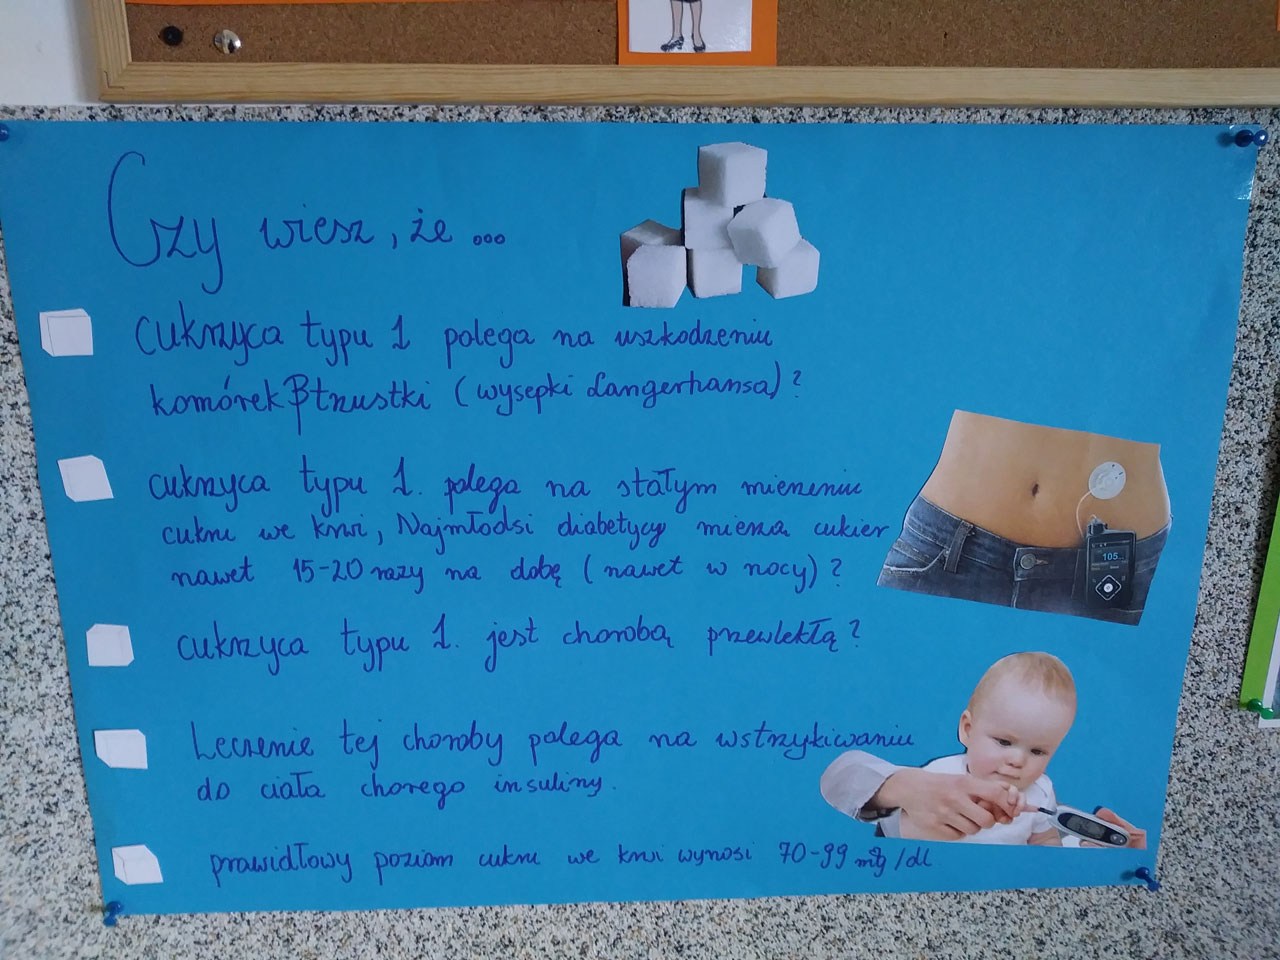 Czy wiesz, że...
cukrzyca typu 1 polega na uszkodzeniu
komórek β trzustki (wysepki Langerhansa)?
cukrzyca typu 1. polega na stałym mierzeniu
cukru we krwi, Najmłodsi diabetycy mierzą cukier
nawet 15-20 razy na dobę (nawet w nocy)?
cukrzyca typu 1. jest chorobą przewlekłą?
Leczenie tej choroby polega na wstrzykiwaniu
do ciała chorego insuliny.
prawidłowy poziom cukru we krwi wynosi 70-99 mg/dl
105